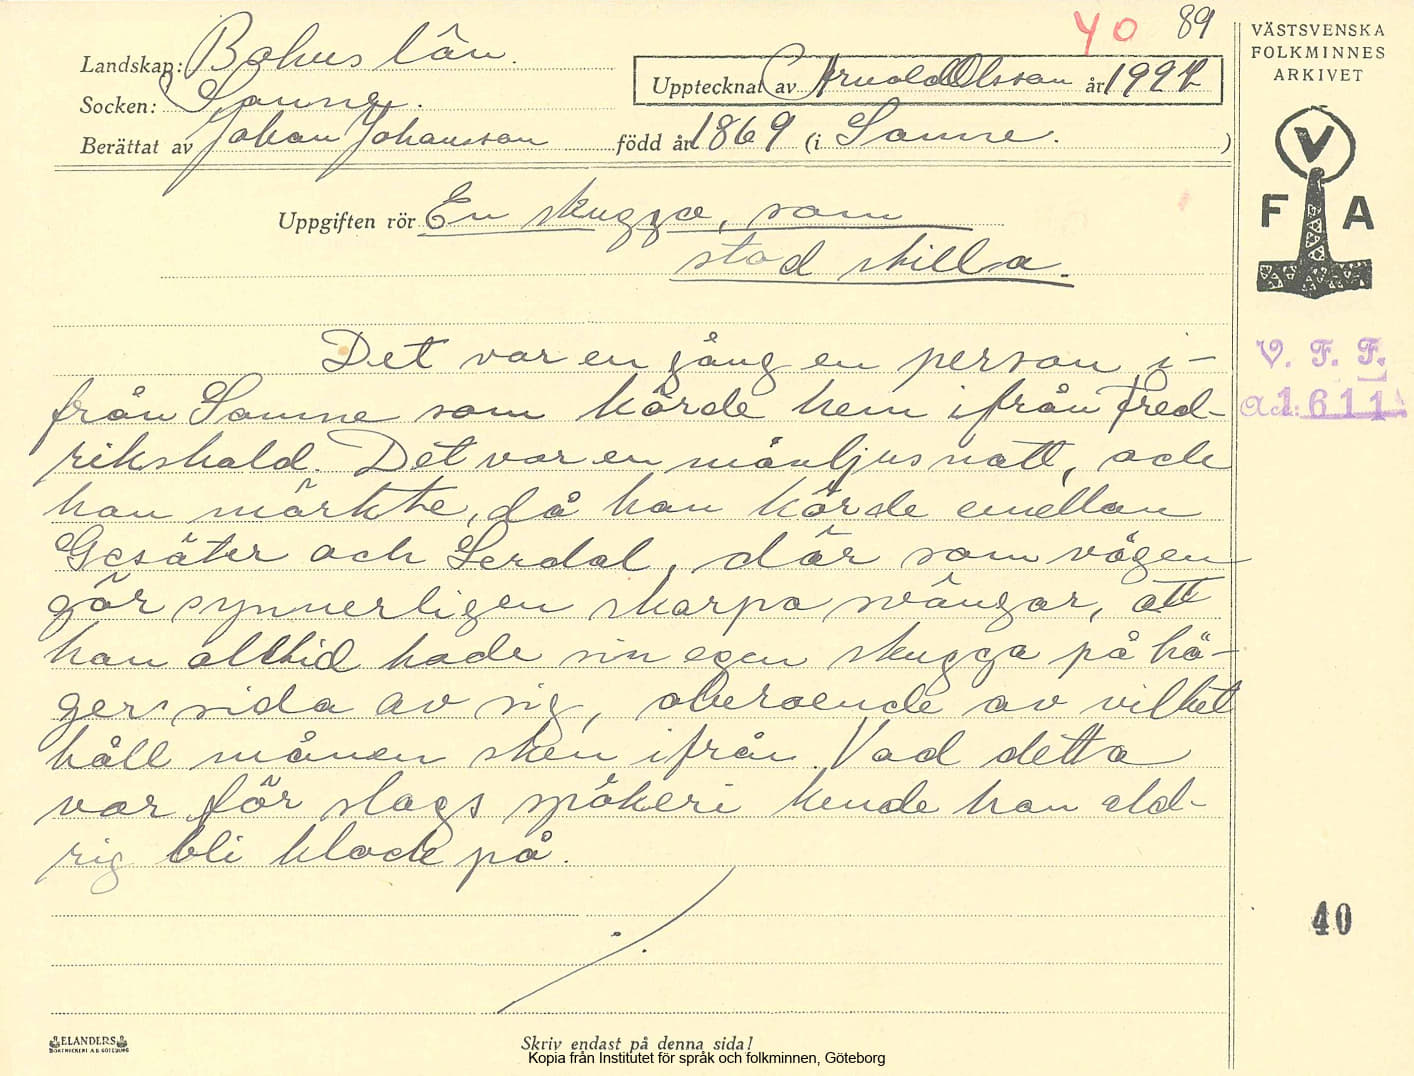 40 89
VÄSTSVENSKA
FOLKMINNES
ARKIVET
Landskap: Bohus län.
Upptecknat av Arnold Olsson år 1927
Socken: Sanne.
Berättat av Johan Johansson född år 1869 (i Sanne. )
V
F A
Uppgiften rör En skugga, som
stod stilla.
Det var en gång en person i-
från Sanne som körde hem ifrån Fred-
rikshald. Det var en månljus natt, och
han märkte, då han körde emellan
Gesäter och Lerdal, där som vägen
gör synnerligen skarpa svängar, att
han alltid hade sin egen skugga på hö-
ger sida av sig, oberoende av vilket
håll månen sken ifrån. Vad detta
var för slags spökeri kunde han ald-
rig bli klock på.
V. F. F.
Acc: 1611
40
ELANDERS
BOKTRYCKERI A.B. GÖTEBORG
Skriv endast på denna sida!
Kopia från Institutet för språk och folkminnen, Göteborg